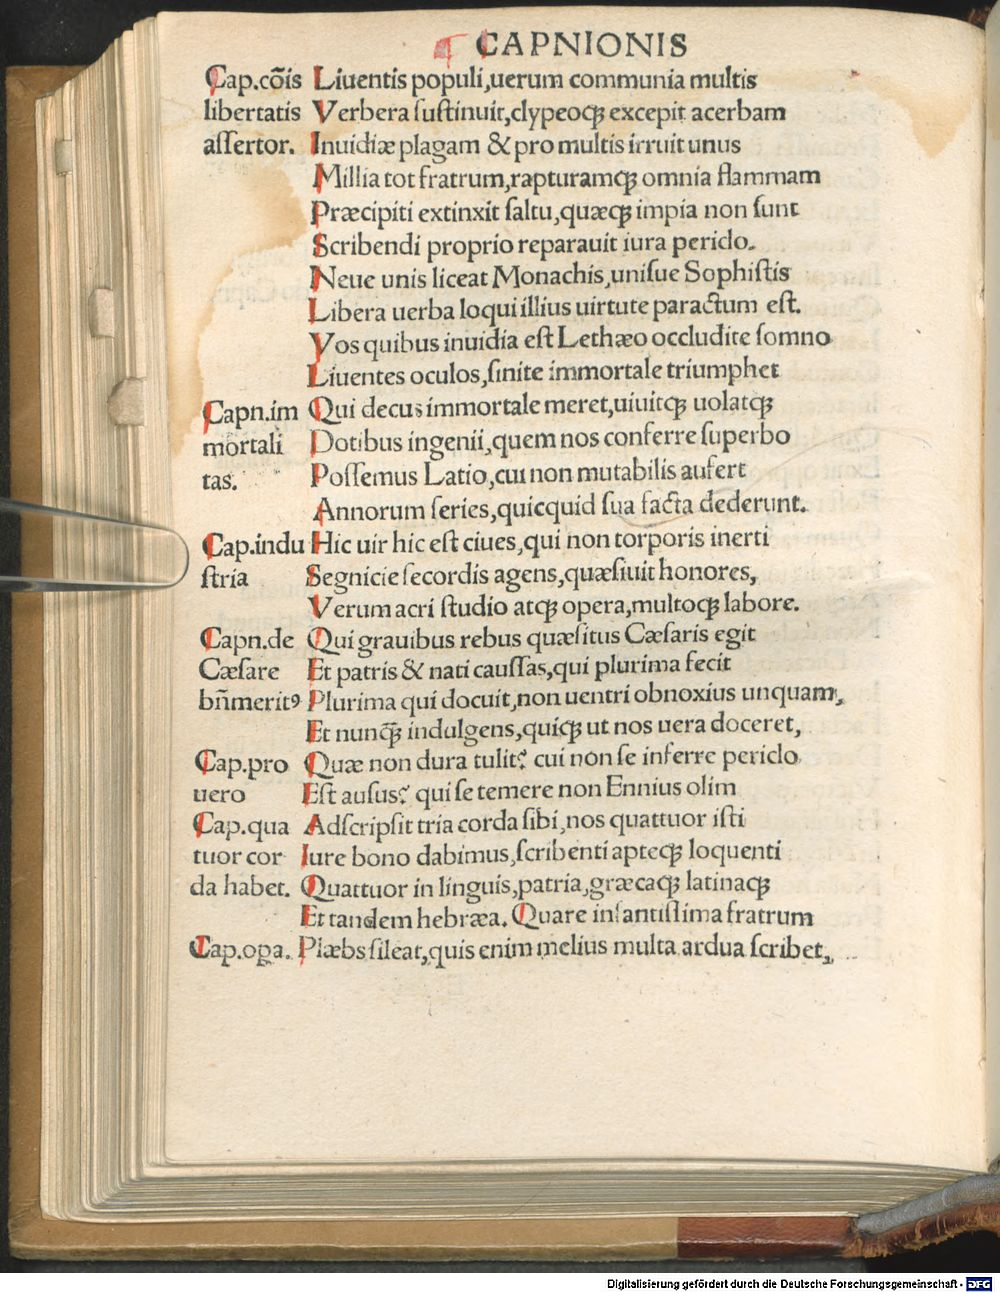 CAPNIONIS
Cap.cõis Liuentis populi,uerum communia multis
libertatis Verbera ſuſtinuit,clypeoqꝫ excepit acerbam
aſſertor. Inuidiæ plagam & pro multis irruit unus
Millia tot fratrum,rapturamqꝫ omnia flammam
Præcipiti extinxit ſaltu,quæqꝫ impia non ſunt
Scribendi proprio reparauit iura periclo.
Neue unis liceat Monachis,uniſue Sophiſtis
Libera uerba loqui illius uirtute paractum eſt.
Vos quibus inuidia eſt Lethæo occludite ſomno
Liuentes oculos,ſinite immortale triumphet
Capn.im Qui decus immortale meret,uiuitqꝫ uolatqꝫ
mortali Dotibus ingenii,quem nos conferre ſuperbo
tas. Poſſemus Latio,cui non mutabilis aufert
Annorum ſeries,quicquid ſua facta dederunt.
Cap.indu Hic uir hic eſt ciues,qui non torporis inerti
ſtria Segnicie ſecordis agens,quæſiuit honores,
Verum acri ſtudio atqꝫ opera,multoqꝫ labore.
Capn.de Qui grauibus rebus quæſitus Cæſaris egit
Cæſare Et patris & nati cauſſas,qui plurima fecit
bñmeritꝰ Plurima qui docuit,non uentri obnoxius unquam,
Et nunqꝫ̃ indulgens,quiqꝫ ut nos uera doceret,
Cap.pro Quæ non dura tulit? cui non ſe inferre periclo
uero Eſt auſus? qui ſe temere non Ennius olim
Cap.qua Adſcripſit tria corda ſibi,nos quattuor iſti
tuor cor Iure bono dabimus,ſcribenti apteqꝫ loquenti
da habet. Quattuor in linguis,patria,græcaqꝫ latinaqꝫ
Et tandem hebræa. Quare infantiſſima fratrum
Cap.oꝑa. Plæbs ſileat,quis enim melius multa ardua ſcribet,
Digitalisierung gefördert durch die Deutsche Forschungsgemeinschaft - DFG